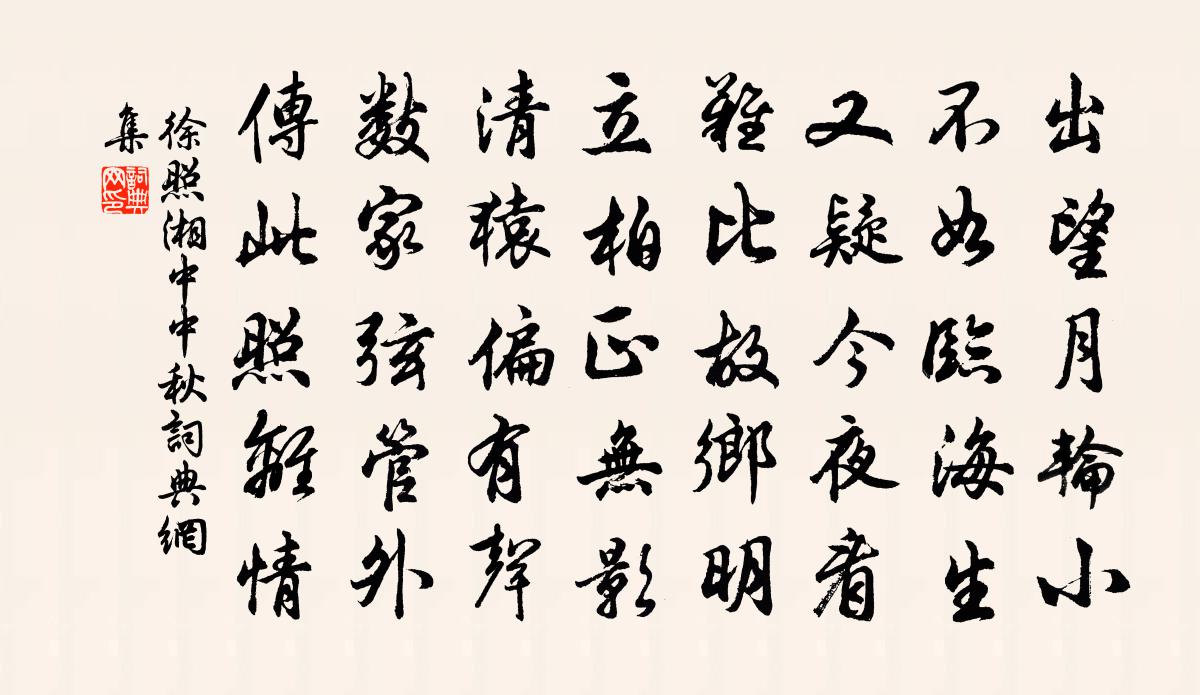 出望月輪小
不如臨海生
又疑今夜看
難比故鄉明
立柏正無影
清猿偏有聲
數家弦管外
傳此照離情
徐照湘中中秋詞典網
集
詞典網印